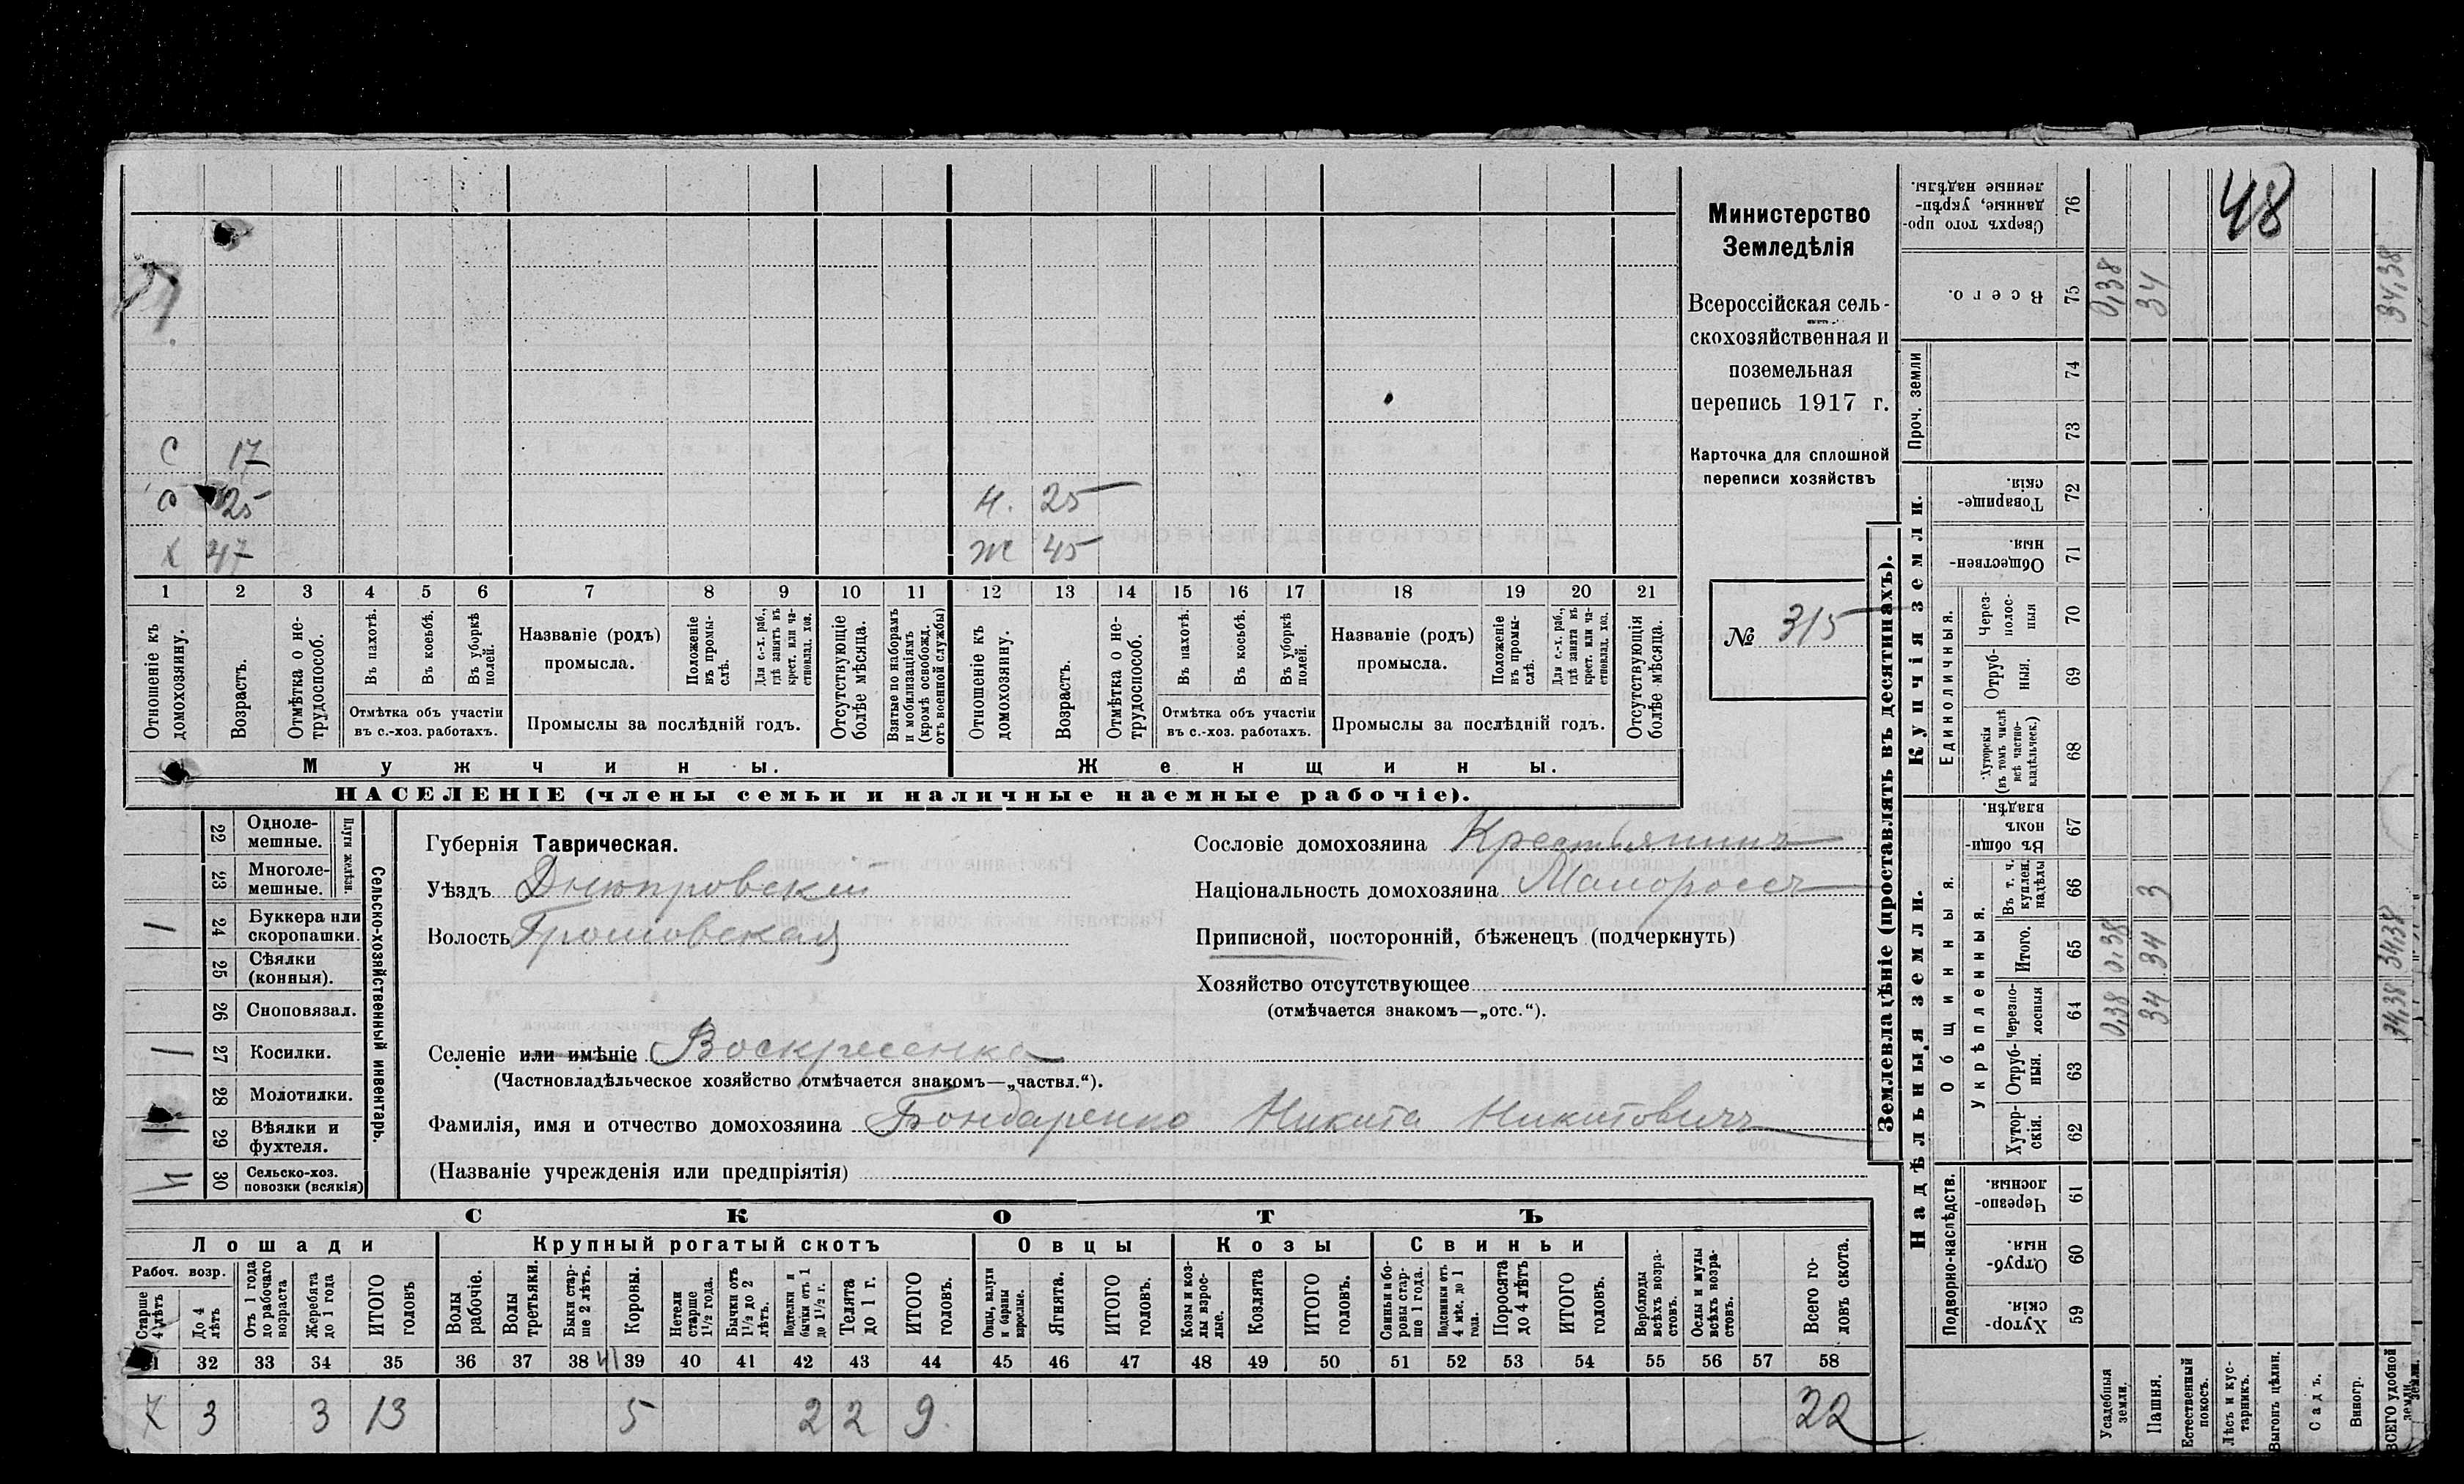 48
Министерство
Земледѣлія
Всероссійская сель-
скохозяйственная и
поземельная
перепись 1917 г.
Карточка для сплошной
переписи хозяйствъ
№ 315
С 17
С 25
Н. 25
Х 47
Ж 45
1 2 3 4 5 6 7 8 9 10 11 12 13 14 15 16 17 18 19 20 21
Отношеніе къ домохозяину.
Возрастъ.
Отмѣтка о не-трудоспособ.
Въ пахотѣ.
Въ косьбѣ.
Въ уборкѣ полей.
Отмѣтка объ участіи
въ с.-хоз. работахъ.
Названіе (родъ)
промысла.
Положеніе въ промы-слѣ.
Для с.-х. раб., гдѣ занятъ въ крест. или ча-стновлад. хоз.
Промыслы за послѣдній годъ.
Отсутствующіе болѣе мѣсяца.
Взятые по наборамъ и мобилизаціямъ (кромѣ освобожд. отъ военной службы)
Отношеніе къ домохозяину.
Возрастъ.
Отмѣтка о не-трудоспособ.
Въ пахотѣ.
Въ косьбѣ.
Въ уборкѣ полей.
Отмѣтка объ участіи
въ с.-хоз. работахъ.
Названіе (родъ)
промысла.
Положеніе въ промы-слѣ.
Для с.-х. раб., гдѣ занята въ крест. или ча-стновлад. хоз.
Промыслы за послѣдній годъ.
Отсутствующія болѣе мѣсяца.
Мужчины.
Женщины.
НАСЕЛЕНІЕ (члены семьи и наличные наемные рабочіе).
Сельско-хозяйственный инвентарь.
22 Одноле-мешные.
23 Многоле-мешные.
24 Буккера или скоропашки. 1
25 Сѣялки (конныя).
26 Сноповязал.
27 Косилки. 1
28 Молотилки.
29 Вѣялки и фухтеля. 1
30 Сельско-хоз. повозки (всякія)
Губернія Таврическая.
Уѣздъ Днѣпровскій
Волость Громовская
Селеніе или имѣніе Воскресенка
(Частновладѣльческое хозяйство отмѣчается знакомъ—„частвл.“).
Фамилія, имя и отчество домохозяина Бондаренко Никита Никитовичъ
(Названіе учрежденія или предпріятія)
Сословіе домохозяина Крестьянинъ
Національность домохозяина Малороссъ
Приписной, посторонній, бѣженецъ (подчеркнуть)
Хозяйство отсутствующее
(отмѣчается знакомъ—„отс.“).
СКОТЪ
Лошади
Крупный рогатый скотъ
Овцы
Козы
Свиньи
Рабоч. возр.
Старше 4 лѣтъ
До 4 лѣтъ
Отъ 1 года до рабочаго возраста
Жеребята до 1 года
ИТОГО головъ
Волы рабочіе.
Волы третьяки.
Быки стар-ше 2 лѣтъ.
Коровы.
Нетели старше 1½ года.
Бычки отъ 1½ до 2 лѣтъ.
Подтелки и бычки отъ 1 до 1½ г.
Телята до 1 г.
ИТОГО головъ.
Овцы, валухи и бараны взрослые.
Ягнята.
ИТОГО головъ.
Козы и коз-лы взрос-лые.
Козлята
ИТОГО головъ.
Свиньи и бо-ровы стар-ше 1 года.
Подсвинки отъ 4 мѣс. до 1 года.
Поросята до 4 лѣтъ
ИТОГО головъ.
Верблюды всѣхъ возра-стовъ.
Ослы и мулы всѣхъ возра-стовъ.
Всего го-ловъ скота.
31 32 33 34 35 36 37 38 39 40 41 42 43 44 45 46 47 48 49 50 51 52 53 54 55 56 57 58
7 3 3 13 5 2 2 9. 22
Землевладѣніе (проставлять въ десятинахъ).
Надѣльныя земли.
Купчія земли.
Проч. земли
Подворно-наслѣдств.
Общинныя.
Укрѣпленныя.
Единоличныя.
Хутор-скія. 59
Отруб-ныя. 60
Черезпо-лосныя. 61
Хутор-скія. 62
Отруб-ныя. 63
Черезпо-лосныя 64
Итого. 65
Въ т. ч. куплен. надѣлы 66
Въ общи-номъ владѣн. 67
Хуторскія (въ томъ числѣ всѣ частно-владѣльческ.) 68
Отруб-ныя. 69
Через-полос-ныя 70
Обществен-ныя. 71
Товарище-скія. 72
73
74
Всего. 75
Сверхъ того про-данные, укрѣп-ленные надѣлы. 76
Усадебныя земли. 0,38 0,38 0,38
Пашня. 34 34 3 34
Естественный покосъ.
Лѣсъ и кус-тарникъ.
Выгонъ цѣлин.
Садъ.
Виногр.
ВСЕГО удобной земли. 34,38 34,38 34,38